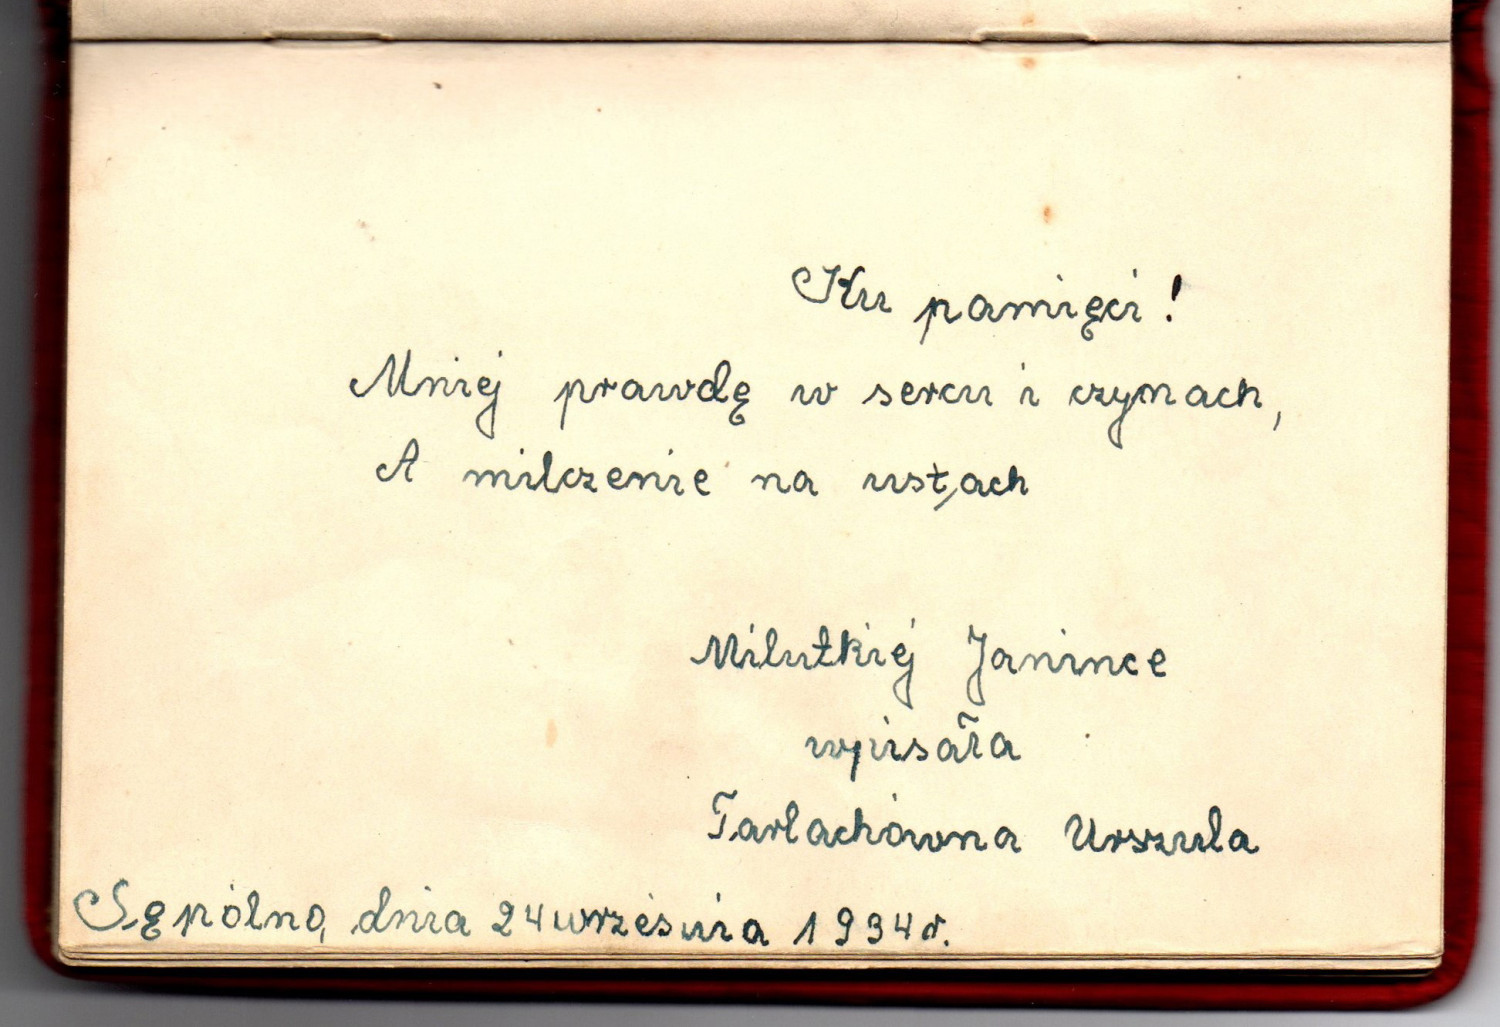 Ku pamięci!
Mniej prawdę w sercu i czynach,
A milczenie na ustach
Milutkiej Janince
wpisała
Tarlachówna Urszula
Sępólno, dnia 24 września 1934 r.